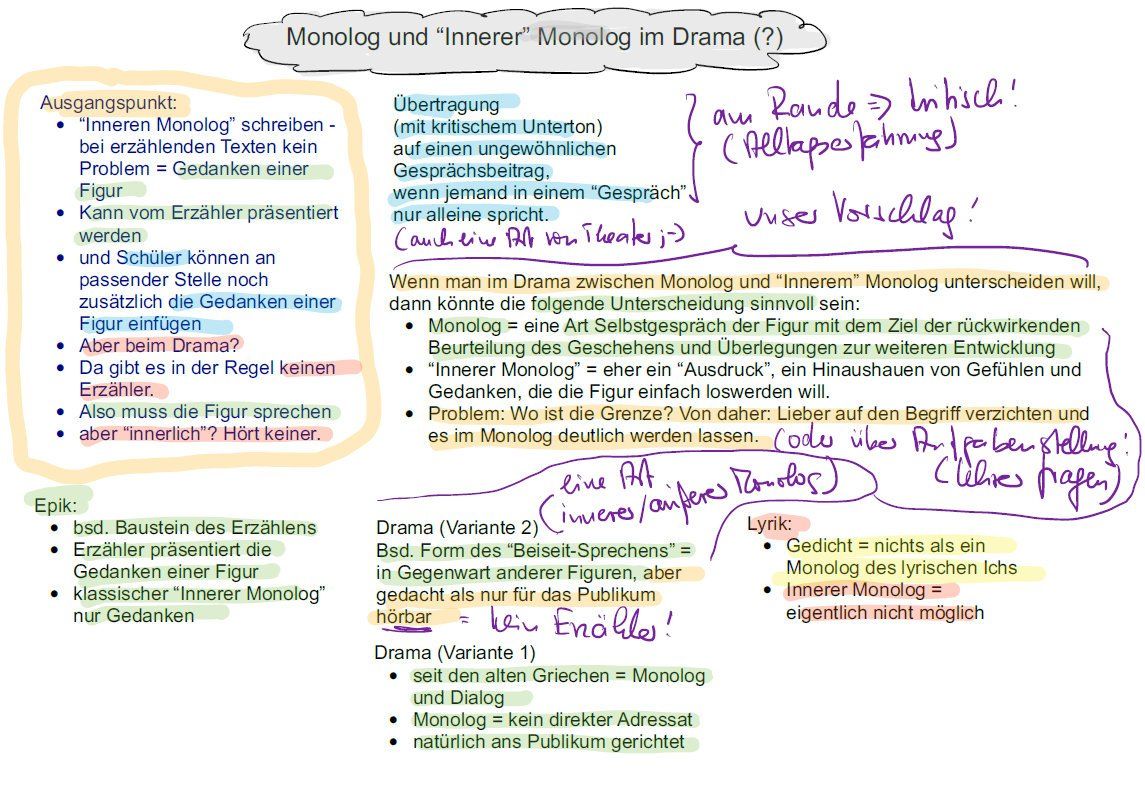 Monolog und “Innerer” Monolog im Drama (?)
Ausgangspunkt:
• “Inneren Monolog” schreiben -
bei erzählenden Texten kein
Problem = Gedanken einer
Figur
• Kann vom Erzähler präsentiert
werden
• und Schüler können an
passender Stelle noch
zusätzlich die Gedanken einer
Figur einfügen
• Aber beim Drama?
• Da gibt es in der Regel keinen
Erzähler.
• Also muss die Figur sprechen
• aber “innerlich”? Hört keiner.
Übertragung
(mit kritischem Unterton)
auf einen ungewöhnlichen
Gesprächsbeitrag,
wenn jemand in einem “Gespräch”
nur alleine spricht.
(auch eine Art von Theater ;-)
am Rande => kritisch!
(Alltagserfahrung)
unser Vorschlag!
Wenn man im Drama zwischen Monolog und “Innerem” Monolog unterscheiden will,
dann könnte die folgende Unterscheidung sinnvoll sein:
• Monolog = eine Art Selbstgespräch der Figur mit dem Ziel der rückwirkenden
Beurteilung des Geschehens und Überlegungen zur weiteren Entwicklung
• “Innerer Monolog” = eher ein “Ausdruck”, ein Hinaushauen von Gefühlen und
Gedanken, die die Figur einfach loswerden will.
• Problem: Wo ist die Grenze? Von daher: Lieber auf den Begriff verzichten und
es im Monolog deutlich werden lassen.
(oder über Aufgabenstellung!
(Lehrer fragen)
Epik:
• bsd. Baustein des Erzählens
• Erzähler präsentiert die
Gedanken einer Figur
• klassischer “Innerer Monolog”
nur Gedanken
eine Art
(innerer/äußerer Monolog)
Drama (Variante 2)
Bsd. Form des “Beiseit-Sprechens” =
in Gegenwart anderer Figuren, aber
gedacht als nur für das Publikum
hörbar = kein Erzähler!
Drama (Variante 1)
• seit den alten Griechen = Monolog
und Dialog
• Monolog = kein direkter Adressat
• natürlich ans Publikum gerichtet
Lyrik:
• Gedicht = nichts als ein
Monolog des lyrischen Ichs
• Innerer Monolog =
eigentlich nicht möglich